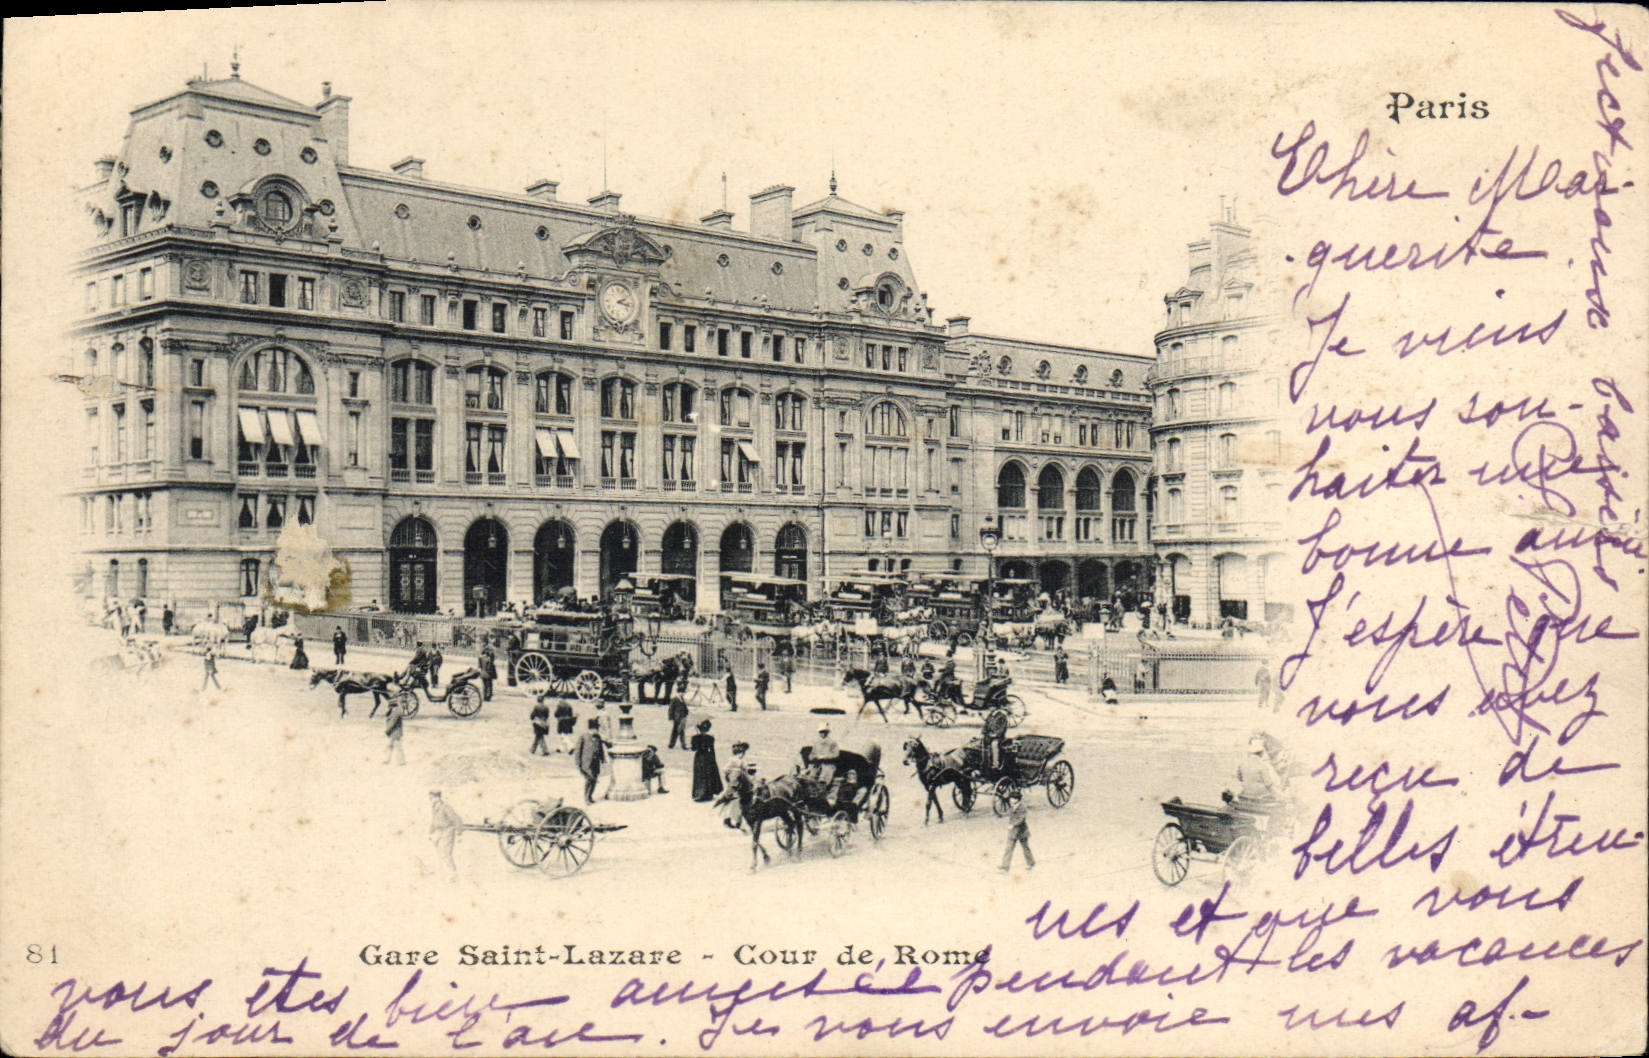 Paris
Chère Mar-
guerite
Je viens
vous sou-
haiter une
bonne année.
J'espère que
vous avez
reçu de
belles étren-
nes et que vous
81
Gare Saint-Lazare - Cour de Rome
vous êtes bien amusée pendant les vacances
du jour de l'an. Je vous envoie mes af-
fectueux baisers